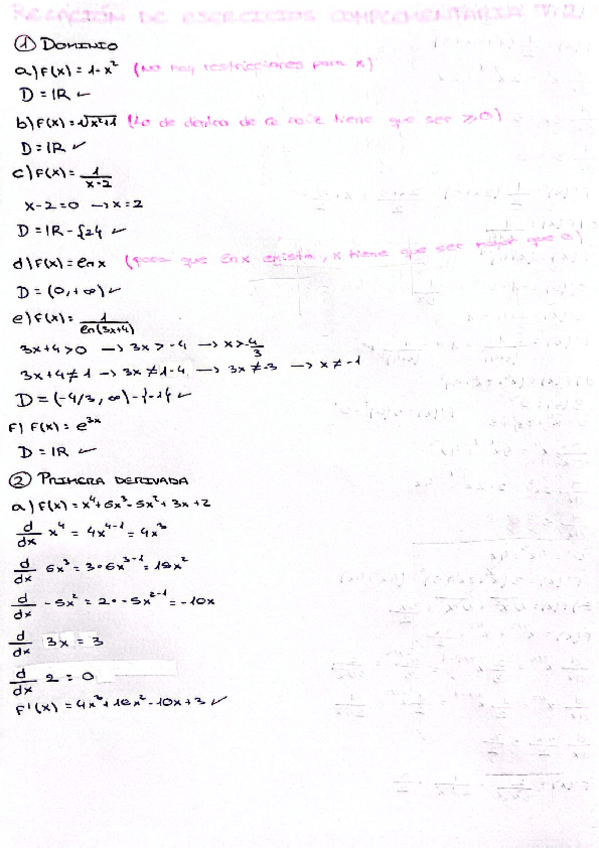 RELACIÓN DE EJERCICIOS COMPLEMENTARIA T.2
① DOMINIO
a) F(x) = 1-x² (No hay restricciones para x)
D = IR ✓
b) F(x) = √x²+1 (Lo de dentro de la raíz tiene que ser ≥0)
D = IR ✓
c) F(x) = 1/(x-2)
x-2=0 → x=2
D = IR - {2} ✓
d) F(x) = ln x (para que ln x exista, x tiene que ser mayor que 0)
D = (0, +∞) ✓
e) F(x) = 1/ln(3x+4)
3x+4>0 → 3x>-4 → x>-4/3
3x+4≠1 → 3x≠1-4 → 3x≠-3 → x≠-1
D = (-4/3, ∞) - {-1} ✓
F) F(x) = e³ˣ
D = IR ✓
② PRIMERA DERIVADA
a) F(x) = x⁴+6x³-5x²+3x+2
d/dx x⁴ = 4x⁴⁻¹ = 4x³
d/dx 6x³ = 3·6x³⁻¹ = 18x²
d/dx -5x² = 2·-5x²⁻¹ = -10x
d/dx 3x = 3
d/dx 2 = 0
F'(x) = 4x³+18x²-10x+3 ✓